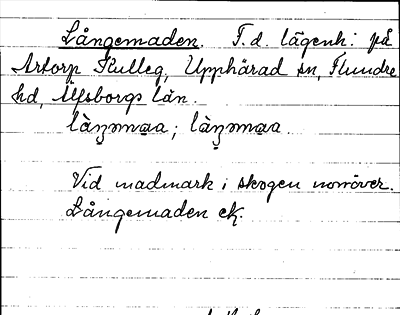 Långemaden. T.d. lägenh. på
Artorp Kulleg, Upphärad sn, Flundre
hd, Älfsborgs län.
Vid madmark i skogen norröver.
Långemaden ek.